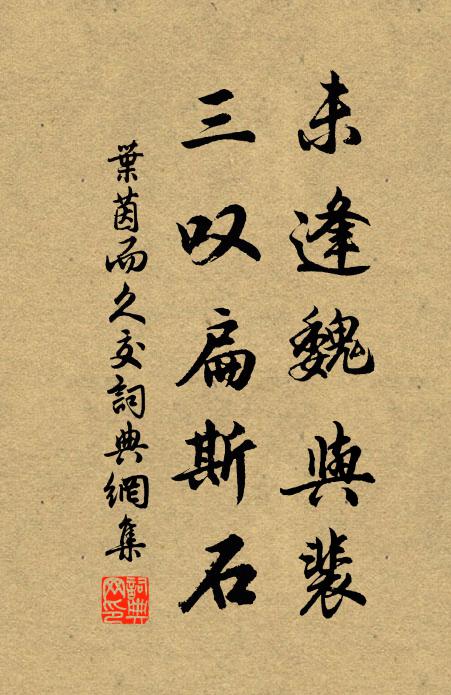 未逢魏與裴
三叹扁斯石
葉茵而久交詞典網集
詞典网印